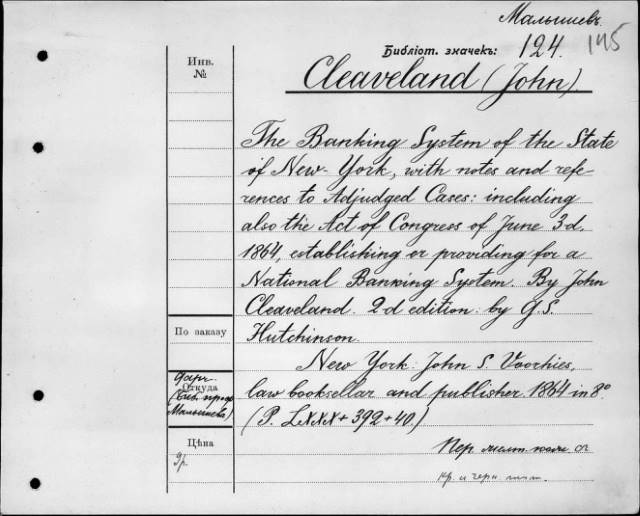 Малышевъ
Библіот. значекъ: 124. 145
Инв.
№
Cleaveland (John).
The Banking System of the State
of New-York, with notes and refe-
rences to Adjudged Cases: including
also the Act of Congress of June 3d.
1864, establishing or providing for a
National Banking System. By John
Cleaveland. 2-d edition: by G.S.
По заказу
Hutchinson.
New York: John S. Voorhies,
Откуда
law booksellar and publisher 1864 in 8°
Малышева)
(P. LXXX + 392 + 40.)
Цѣна
Пер.
кр. и черн.